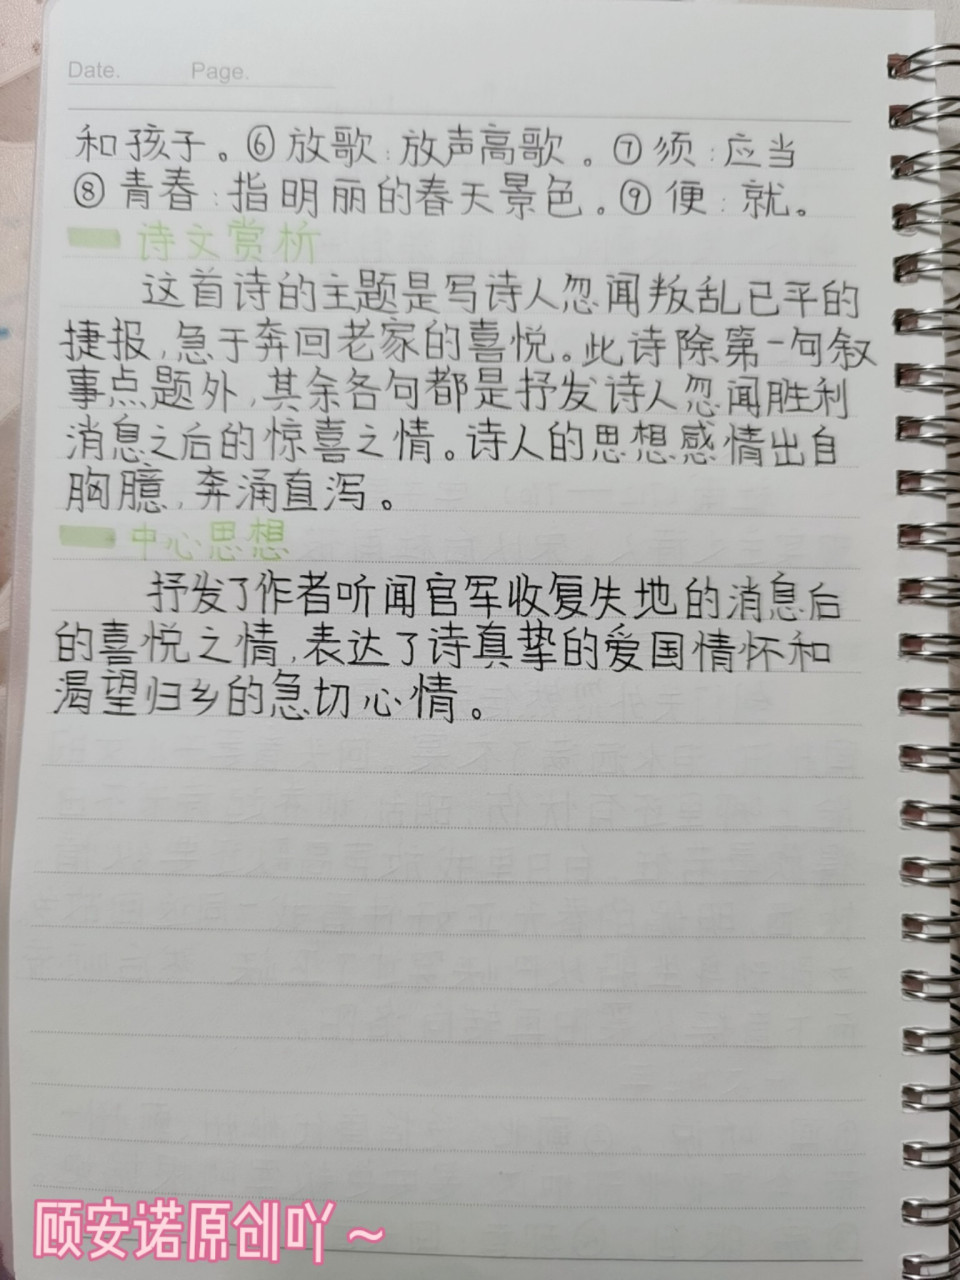 Date. Page.
和孩子。⑥放歌:放声高歌。⑦须:应当
⑧青春:指明丽的春天景色。⑨便:就。
诗文赏析
这首诗的主题是写诗人忽闻叛乱已平的
捷报,急于奔回老家的喜悦。此诗除第一句叙
事点题外,其余各句都是抒发诗人忽闻胜利
消息之后的惊喜之情。诗人的思想感情出自
胸臆,奔涌直泻。
中心思想
抒发了作者听闻官军收复失地的消息后
的喜悦之情,表达了诗真挚的爱国情怀和
渴望归乡的急切心情。
顾安诺原创吖~